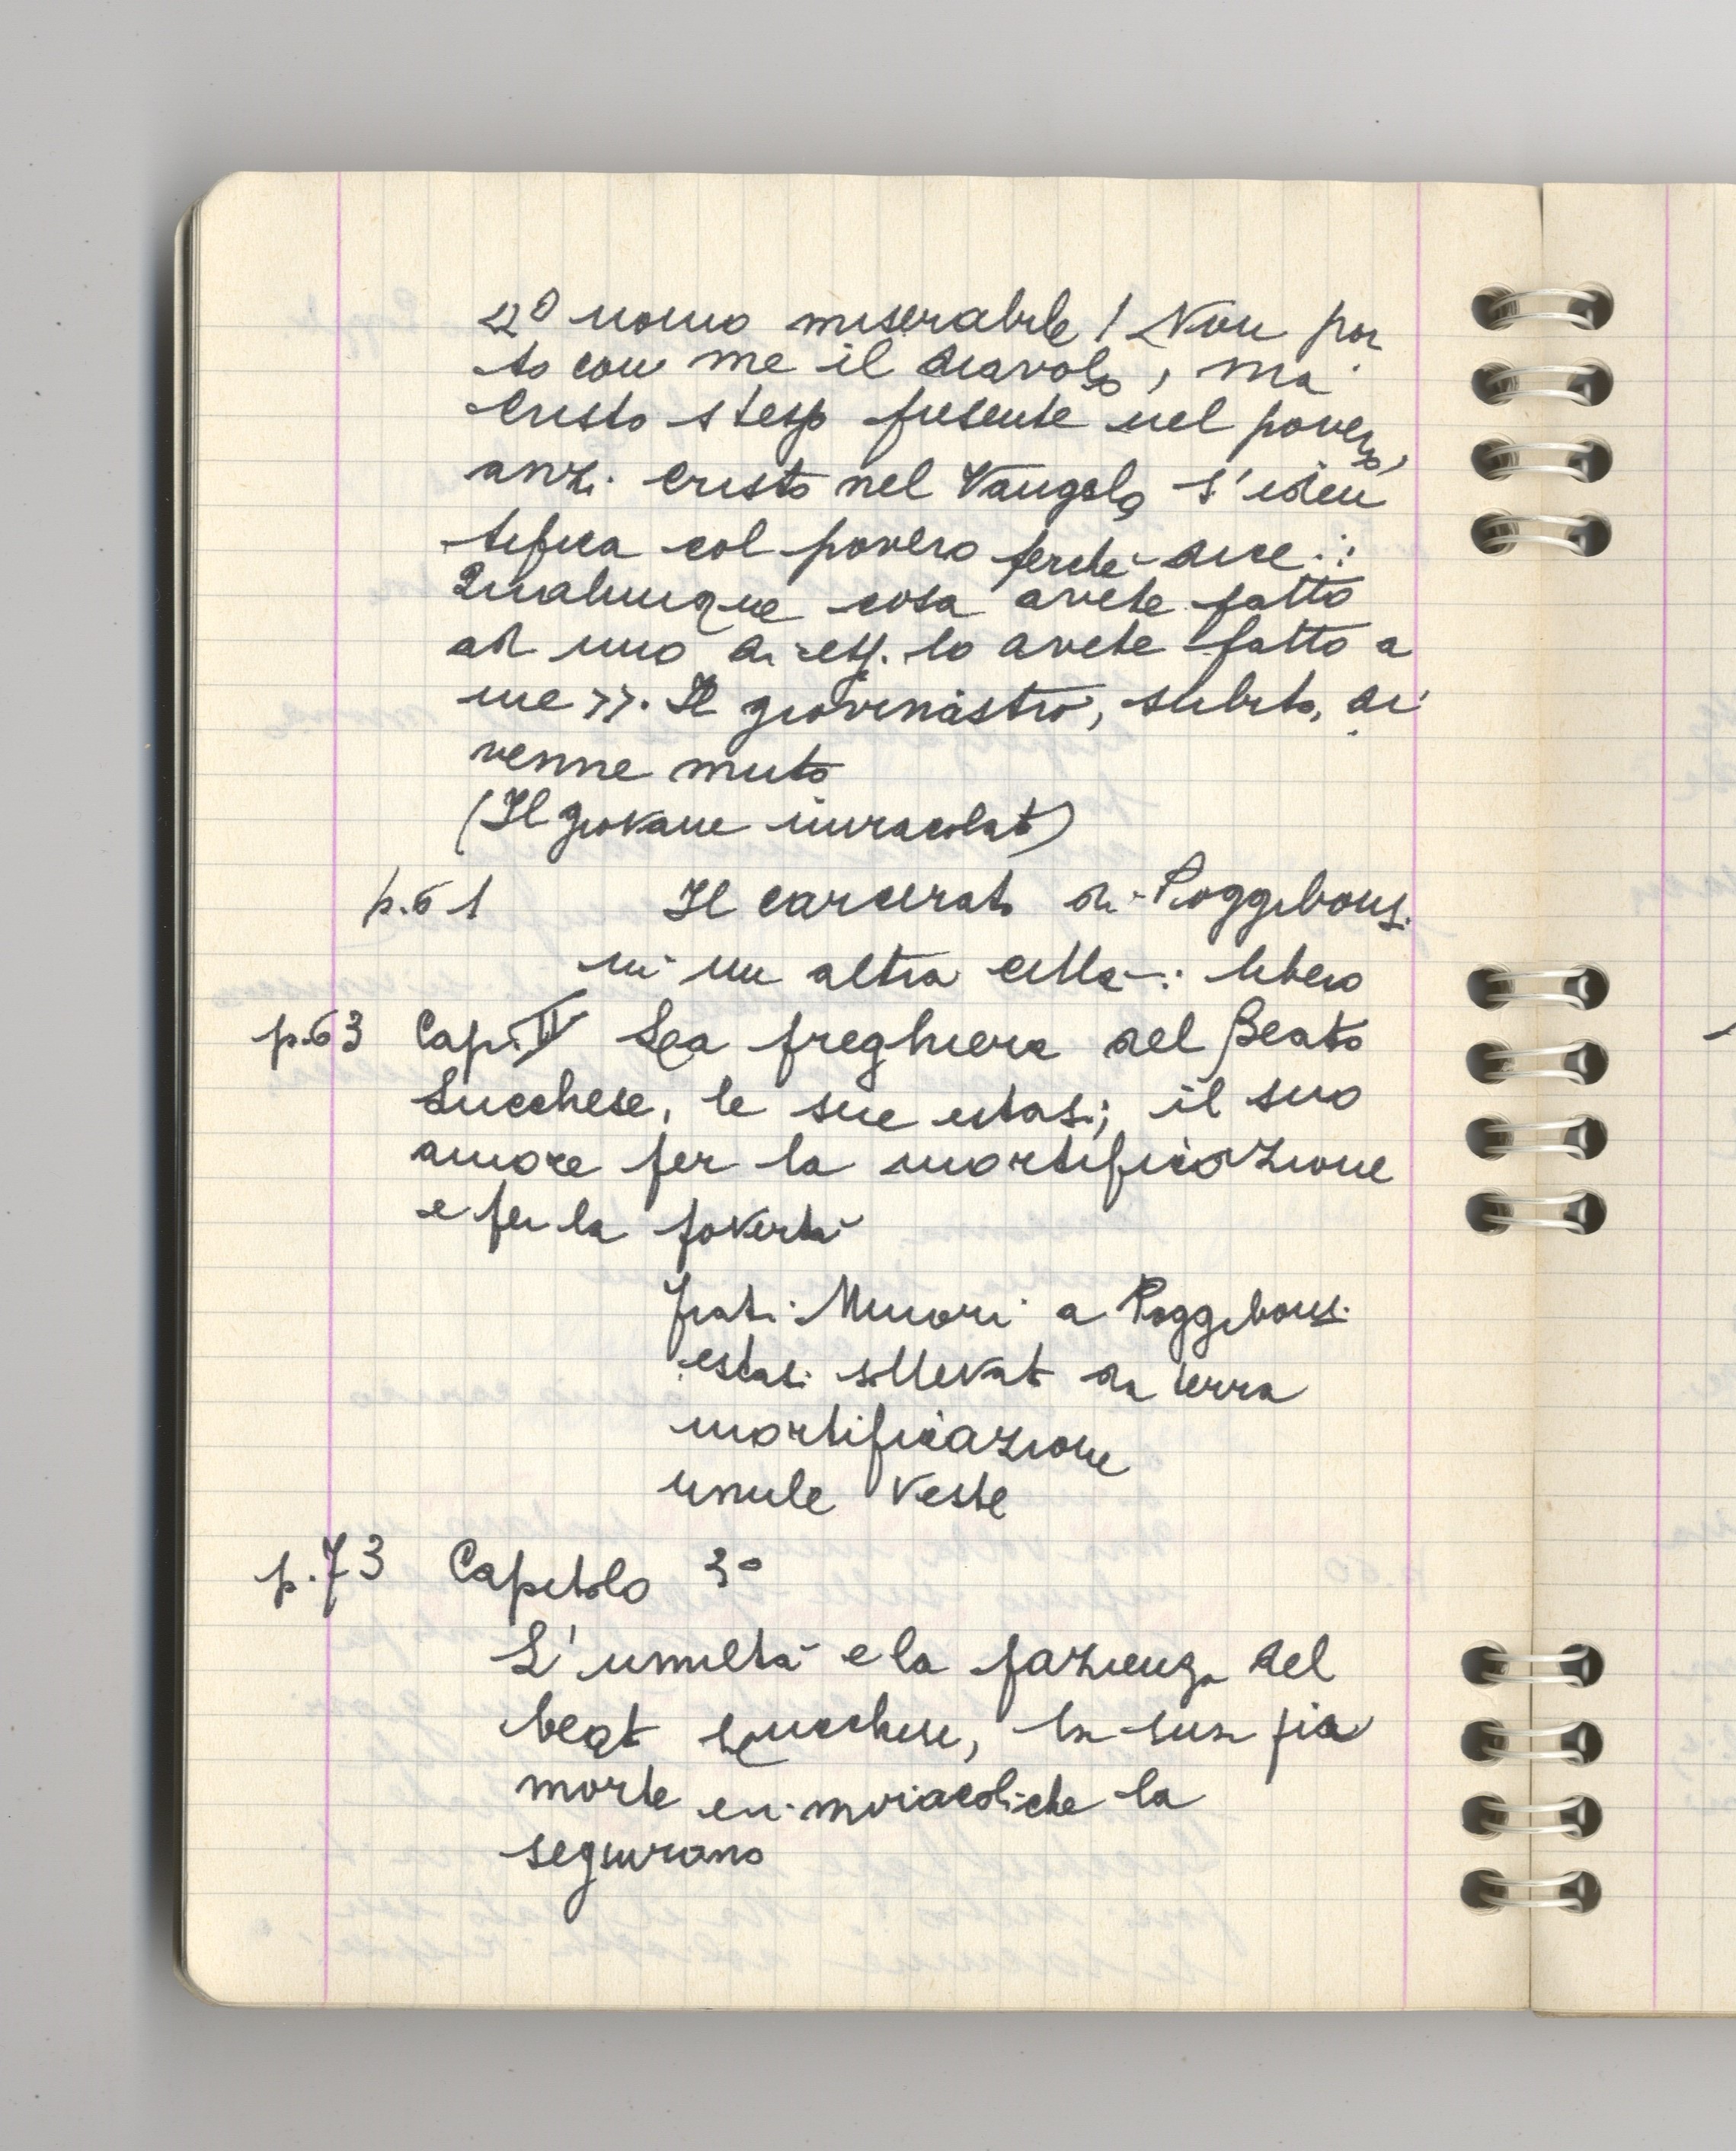 <<O uomo miserabile! Non por
to con me il diavolo, ma
Cristo stesso presente nel povero,
anzi Cristo nel Vangelo s'iden
tifica col povero perché dice:
Qualunque cosa avete fatto
ad uno di essi lo avete fatto a
me >>. Il giovinastro, subito, di
venne muto
(Il giovane miracolato)
p.61 Il carcerato di Poggibonsi
in un altra cella: libero
p.63 Cap. II La preghiera del Beato
Lucchese, le sue estasi; il suo
amore per la mortificazione
e per la povertà
frati Minori a Poggibonsi
estasi sollevato da terra
mortificazione
umile veste
p.73 Capitolo 3°
L'umiltà e la pazienza del
beato Lucchese, la sua pia
morte e i miracoli che la
seguirono